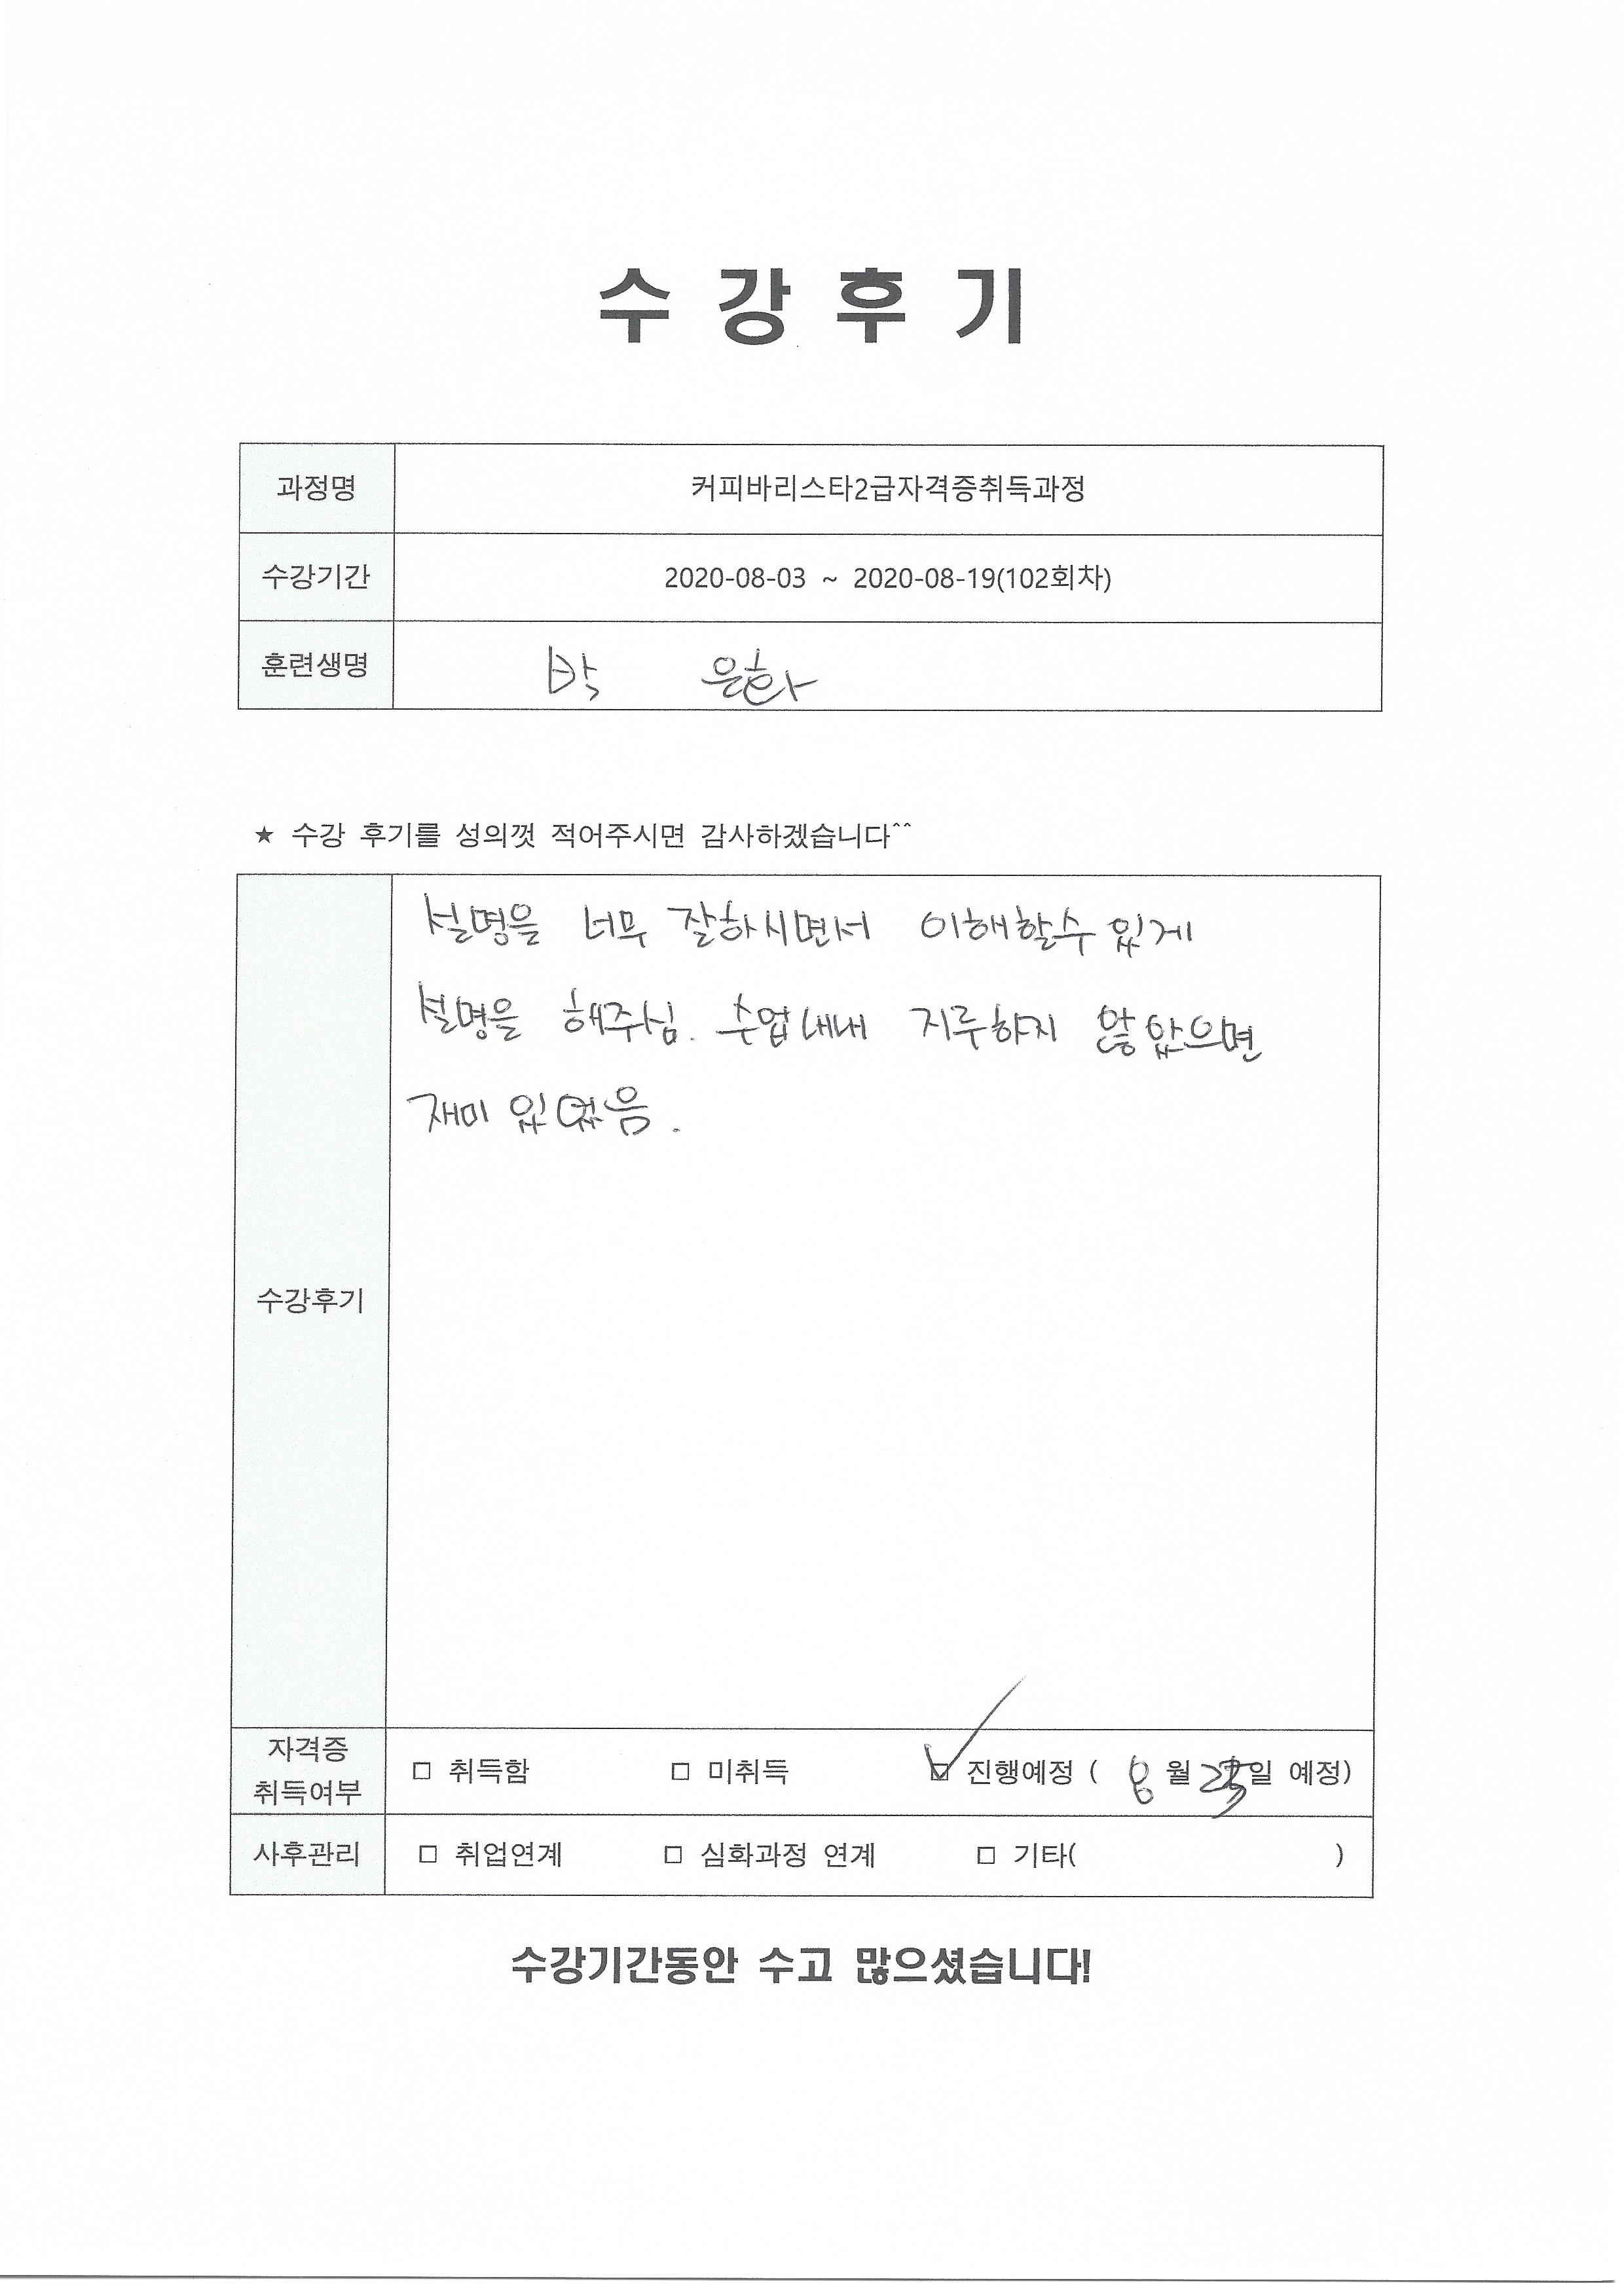 수 강 후 기
과정명 커피바리스타2급자격증취득과정
수강기간 2020-08-03 ~ 2020-08-19(102회차)
훈련생명 박 은화
★ 수강 후기를 성의껏 적어주시면 감사하겠습니다^^
설명을 너무 잘하시면서 이해할수 있게
설명을 해주심. 수업내내 지루하지 않았으면
재미 있었음.
수강후기
자격증
취득여부
□ 취득함 □ 미취득 ☑ 진행예정 ( 8월 일 예정)
사후관리 □ 취업연계 □ 심화과정 연계 □ 기타( )
수강기간동안 수고 많으셨습니다!